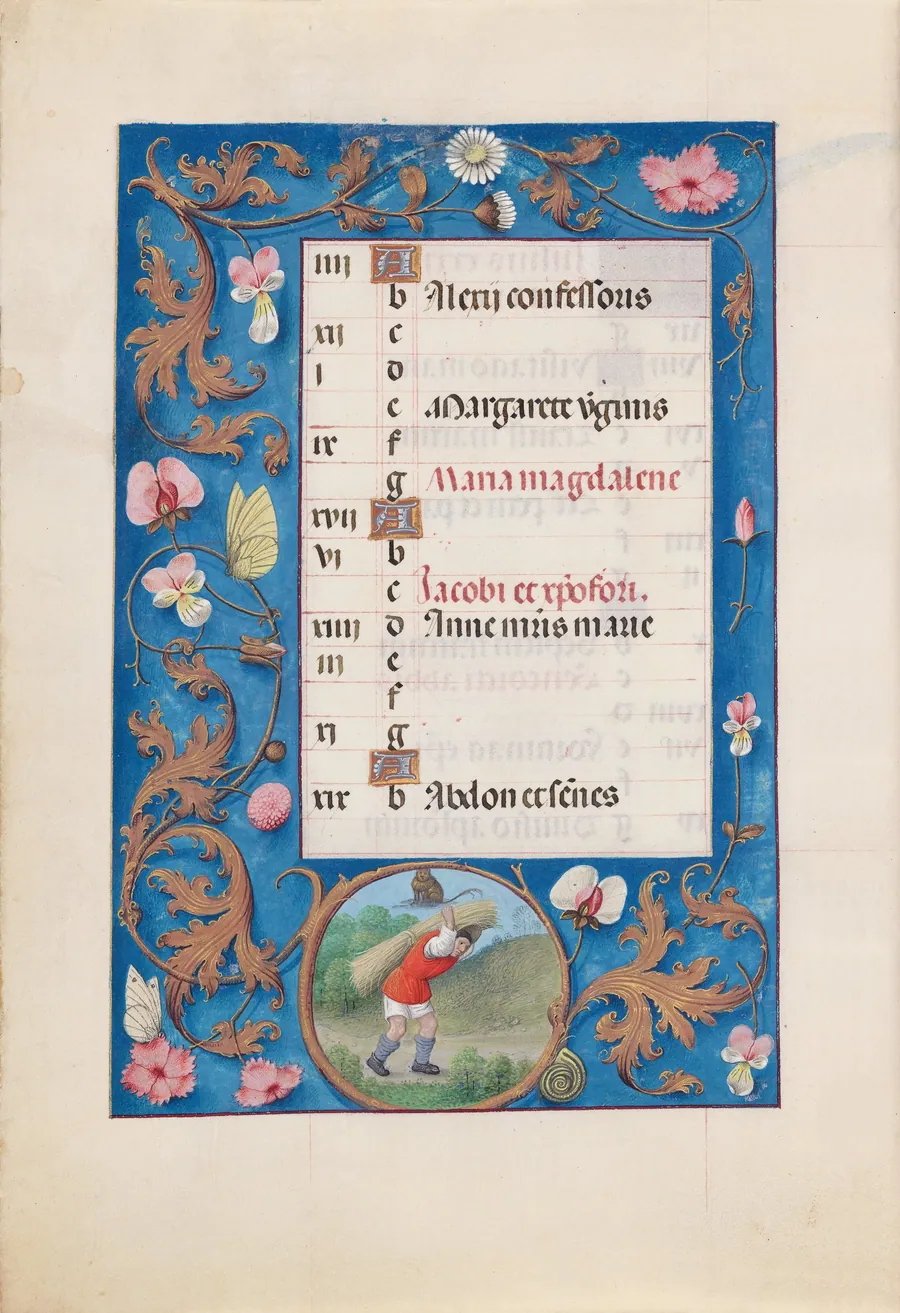 iiij A
b Alexij confessoris
xij c
j d
e Margarete v̄ginis
ix f
g Maria magdalene
xvij A
vj b
c Jacobi et xp̄ofori.
xiiij d Anne mr̄is marie
iij e
f
xj g
A
xix b Abdon et sēnes